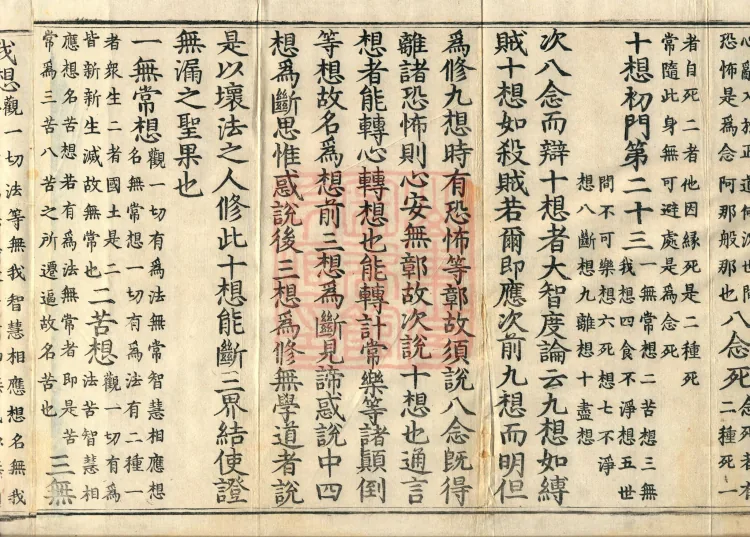 恐怖是爲念阿那般那也
八念死
念死者有
二種死一
者自死二者他因緣死是二種死
常隨此身無可避處是爲念死
十想初門第二十三
一無常想二苦想三無
我想四食不淨想五世
間不可樂想六死想七不淨
想八斷想九離想十盡想
次八念而辯十想者大智度論云九想如縛
賊十想如殺賊若爾即應次前九想而明但
爲修九想時有恐怖等鄣故須說八念旣得
離諸恐怖則心安無鄣故次說十想也通言
想者能轉心轉想也能轉計常樂等諸顛倒
等想故名爲想前三想爲斷見諦惑說中四
想爲斷思惟惑說後三想爲修無學道者說
是以壞法之人修此十想能斷三界結使證
無漏之聖果也
一無常想
觀一切有爲法無常智慧相應想
名無常想一切有爲法有二種一
者衆生二者國土是二
皆新新生滅故無常也
二苦想
觀一切有爲
法苦智慧相
應想名苦想若有爲法無常者即是苦
常爲三苦八苦之所遷逼故名苦也
三無
我想
觀一切法等無我智慧相應想名無我